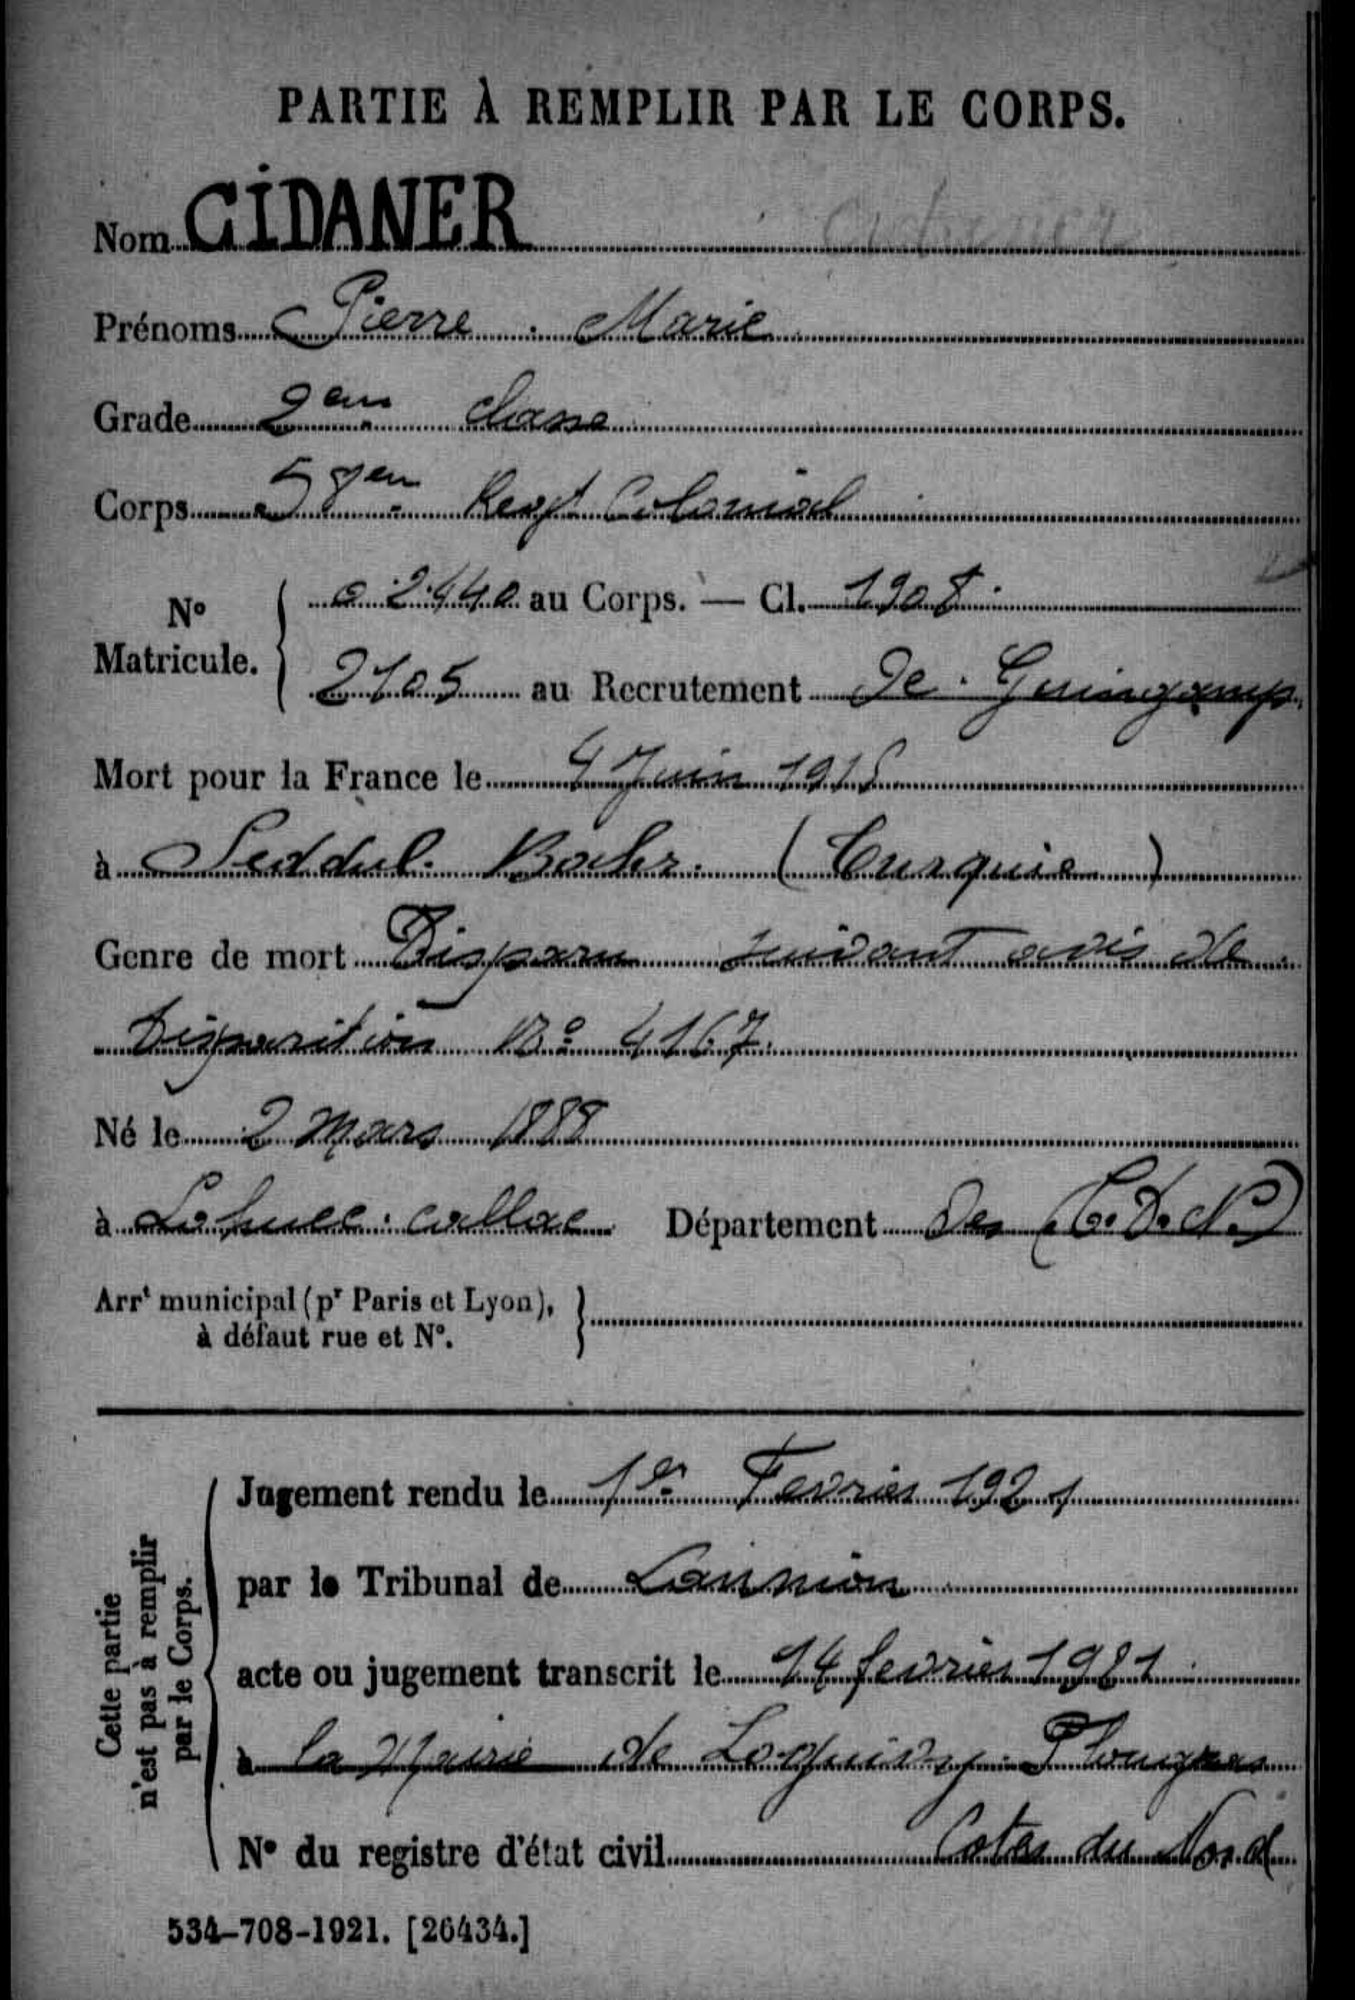 PARTIE À REMPLIR PAR LE CORPS.
Nom CIDANER
Prénoms Pierre. Marie
Grade 2em classe
Corps 58em Regt Colonial
N° Matricule. { 02440 au Corps. — Cl. 1908.
2105 au Recrutement de Guingamp
Mort pour la France le 4 Juin 1915
à Seddul. Bahr. (Turquie)
Genre de mort Disparu suivant avis de
disparition No 4167.
Né le 2 mars 1888
à Lohuec. callac Département des (C. D. N)
Arrt municipal (pr Paris et Lyon),
à défaut rue et N°. }
Cette partie
n'est pas à remplir
par le Corps.
Jugement rendu le 1er Fevrier 1921
par le Tribunal de Lannion
acte ou jugement transcrit le 14 fevrier 1921
à la Mairie de Loguivy. Plougras
N° du registre d'état civil Cotes du Nord
534-708-1921. [26434.]